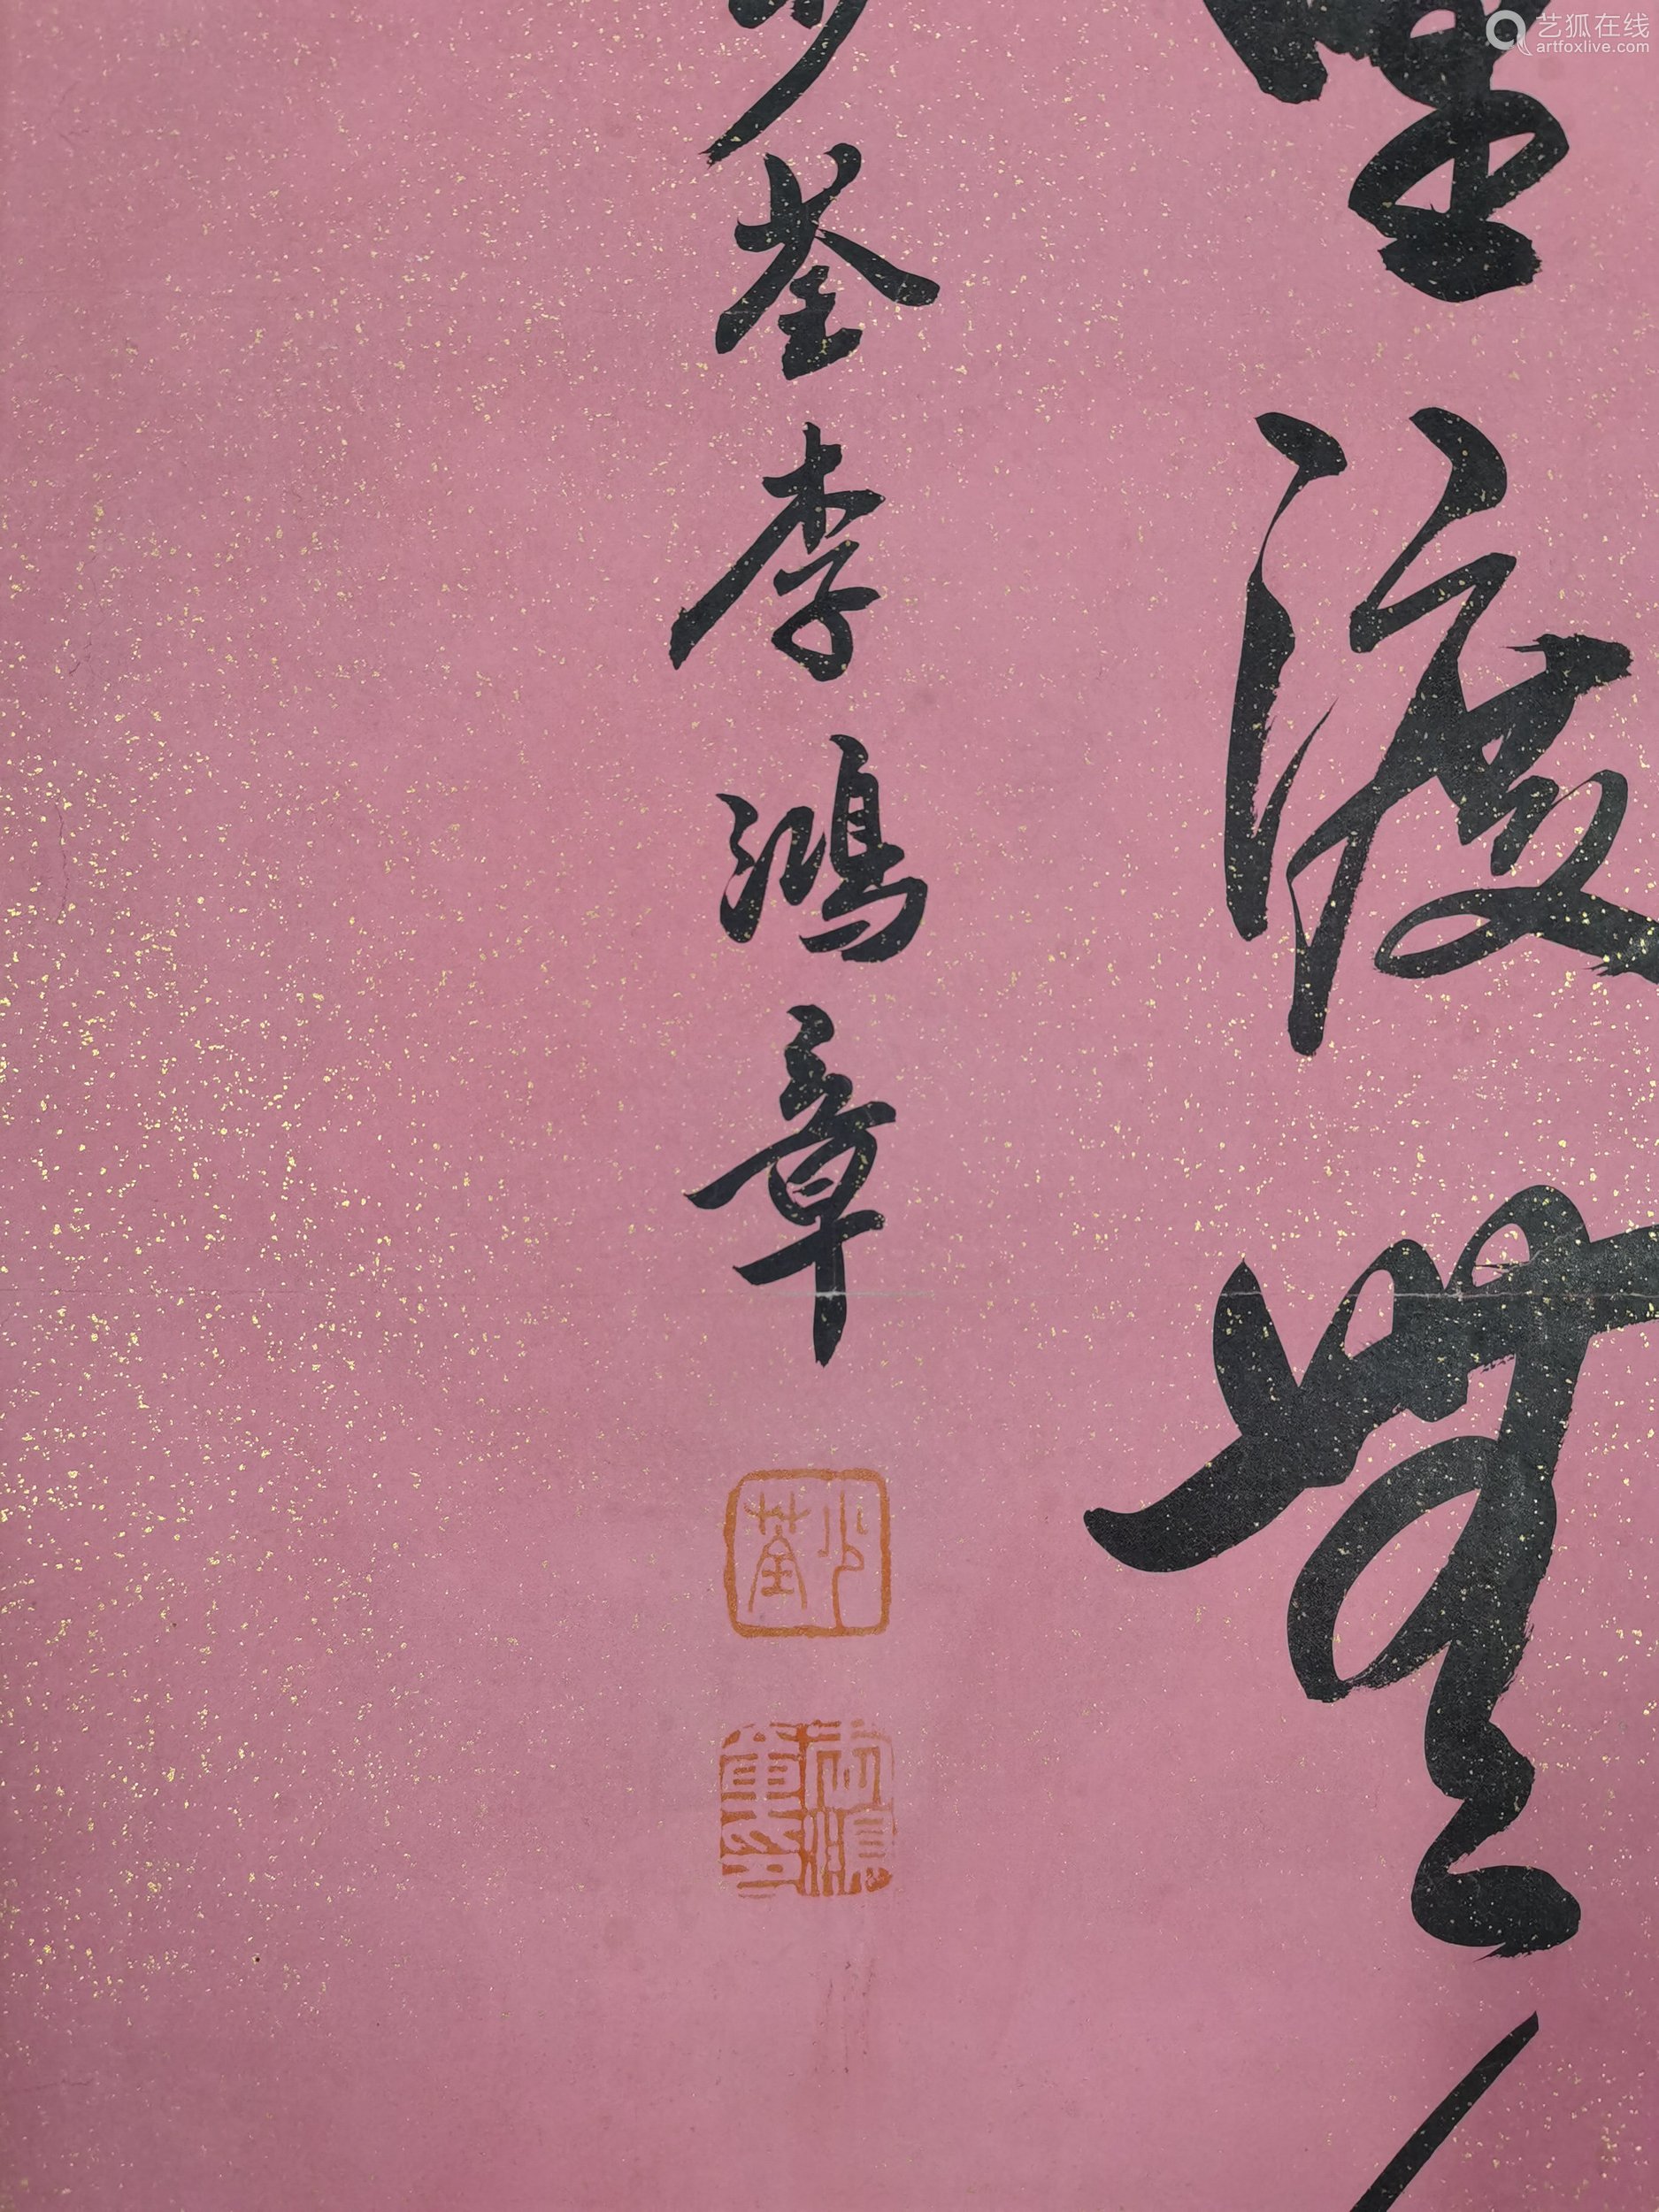 艺狐在线
artfoxlive.com
渡無
少荃李鴻章
少荃